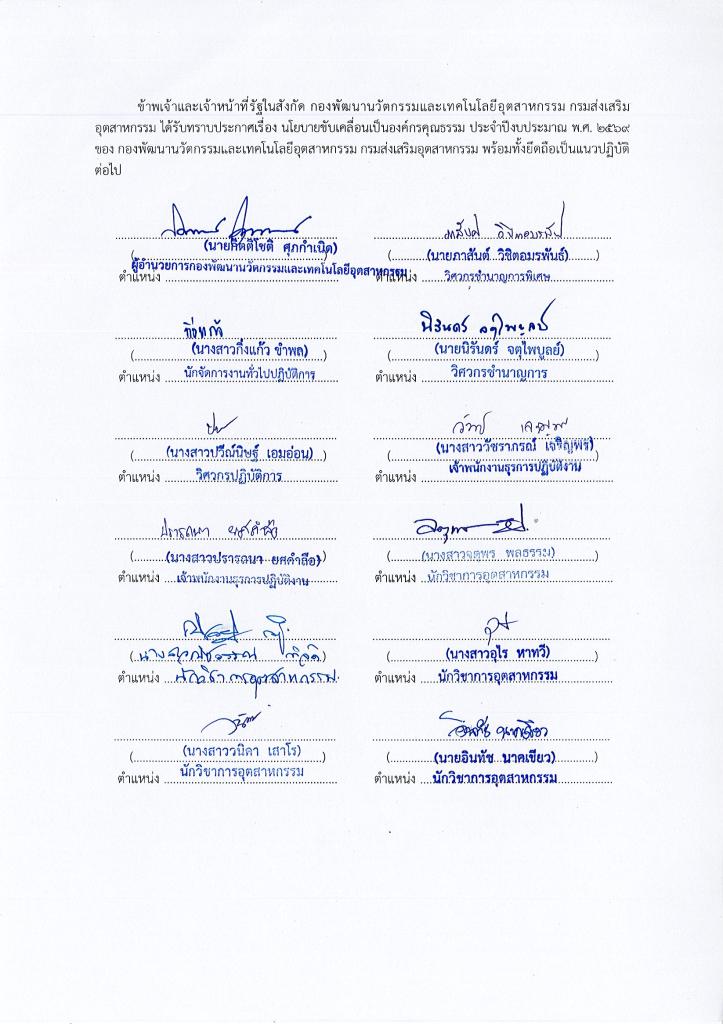 ข้าพเจ้าและเจ้าหน้าที่รัฐในสังกัด กองพัฒนานวัตกรรมและเทคโนโลยีอุตสาหกรรม กรมส่งเสริม
อุตสาหกรรม ได้รับทราบประกาศเรื่อง นโยบายขับเคลื่อนเป็นองค์กรคุณธรรม ประจำปีงบประมาณ พ.ศ. ๒๕๖๙
ของ กองพัฒนานวัตกรรมและเทคโนโลยีอุตสาหกรรม กรมส่งเสริมอุตสาหกรรม พร้อมทั้งยึดถือเป็นแนวปฏิบัติ
ต่อไป
(นายกิตติโชติ ศุภกำเนิด)
ตำแหน่ง ผู้อำนวยการกองพัฒนานวัตกรรมและเทคโนโลยีอุตสาหกรรม
(นายภาสันต์ วิชิตอมรพันธ์)
ตำแหน่ง วิศวกรชำนาญการพิเศษ
กิ่งแก้ว
(นางสาวกิ่งแก้ว ขำพล)
ตำแหน่ง นักจัดการงานทั่วไปปฏิบัติการ
นิรันดร์ จตุไพบูลย์
(นายนิรันดร์ จตุไพบูลย์)
ตำแหน่ง วิศวกรชำนาญการ
(นางสาวปวีณ์นิษฐ์ เอมอ่อน)
ตำแหน่ง วิศวกรปฏิบัติการ
(นางสาววัชราภรณ์ เจริญพร)
ตำแหน่ง เจ้าพนักงานธุรการปฏิบัติงาน
ปรารถนา ยศคำลือ
(นางสาวปรารถนา ยศคำลือ)
ตำแหน่ง เจ้าพนักงานธุรการปฏิบัติงาน
(นางสาวจตุพร พลธรรม)
ตำแหน่ง นักวิชาการอุตสาหกรรม
(นางสาว)
ตำแหน่ง นักวิชาการอุตสาหกรรม
(นางสาวอุไร หาทวี)
ตำแหน่ง นักวิชาการอุตสาหกรรม
วนิดา
(นางสาววนิดา เสาโร)
ตำแหน่ง นักวิชาการอุตสาหกรรม
อินทัช นาคเขียว
(นายอินทัช นาคเขียว)
ตำแหน่ง นักวิชาการอุตสาหกรรม